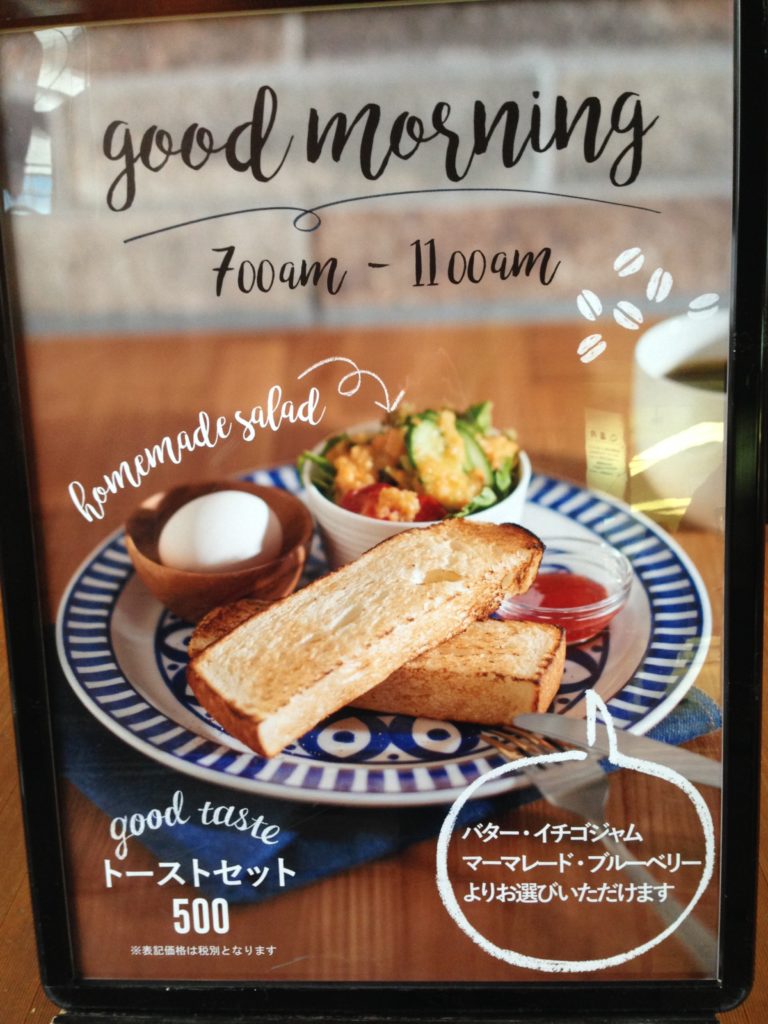 good morning
700am - 1100am
homemade salad
good taste
トーストセット
500
※表記価格は税別となります
バター・イチゴジャム
マーマレード・ブルーベリー
よりお選びいただけます